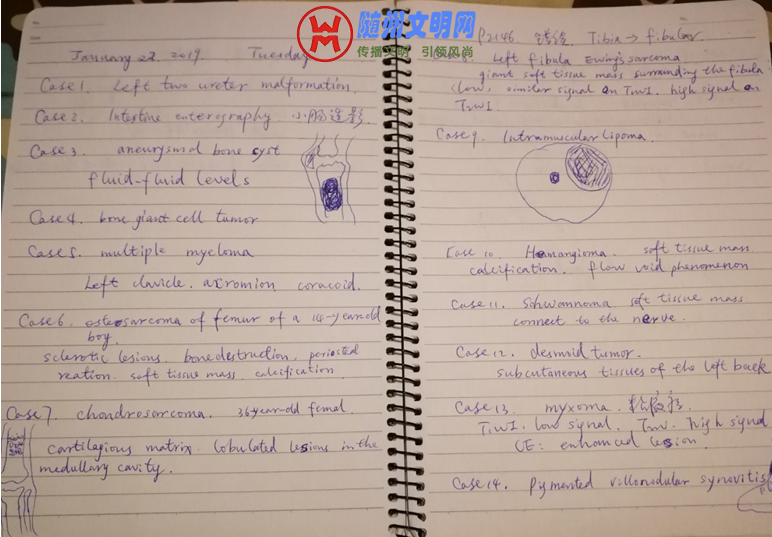 随州文明网
传播文明 引领风尚
January 22. 2019 Tuesday
Case 1. Left two ureter malformation.
Case 2. Intestine enterography 小肠造影.
Case 3. aneurysmal bone syst
fluid-fluid levels
Case 4. bone giant cell tumor
Case 5. multiple myeloma
Left clavicle. acromion coracoid.
Case 6. osteosarcoma of femur of a 14-year-old
boy.
sclerotic lesions. bone destruction. periosted
reation. soft tissue mass. calcification
Case 7. chondrosarcoma. 36year-old femal.
cartilagious matrix. lobulated lesions in the
medullary cavity.
P2146 Tibia → fibular
Case 8. Left fibula Ewing's sarcoma
giant soft tissue mass surrounding the fibula
(low, similar signal on T1WI. high signal on
T2WI
Case 9. Intramuscular lipoma.
Case 10. Hemangioma. soft tissue mass.
calcification. flow void phenomenon
Case 11. Schwannoma soft tissue mass
connect to the nerve.
Case 12. desmoid tumor.
subcutaneous tissues of the left back
Case 13. myxoma.
T1WI. low signal. high signal
CE: enhanced lesion.
Case 14. pymented villonodular synovitis